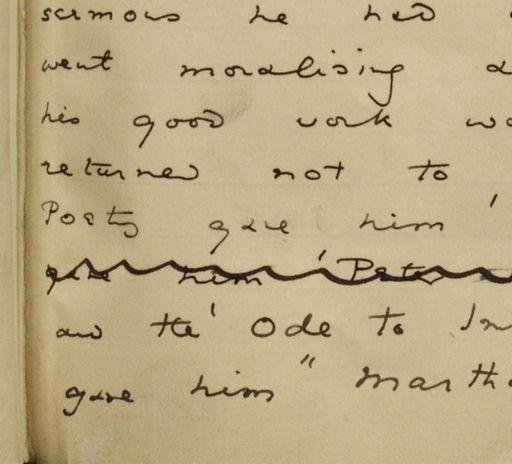 sermons he had
went moralising
his good work
returned not to
Poetry gave him '
gave him 'Peter
and the ' Ode to
gave him "